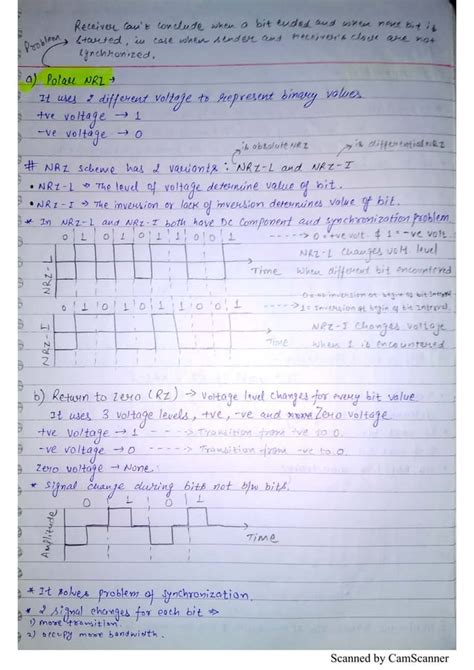 Receiver can't conclude when a bit ended and when next bit is
Problem
started, in case when sender and receiver's clock are not
synchronized.
a) Polar NRZ →
It uses 2 different voltage to represent binary values
+ve voltage → 1
-ve voltage → 0
is absolute NRZ
is differential NRZ
# NRZ scheme has 2 variants : NRZ-L and NRZ-I
• NRZ-L → The level of voltage determine value of bit.
• NRZ-I → The inversion or lack of inversion determines value of bit.
* In NRZ-L and NRZ-I both have DC Component and synchronization problem
0 1 0 1 1 0 0 1
0 = +ve volt. & 1 = -ve volt.
NRZ-L changes volt. level
NRZ-L
Time
When different bit encountered
0 = no inversion at begin of bit interval
0 1 0 1 1 0 0 1
1 = inversion at begin of bit interval
NRZ-I
NRZ-I changes voltage
Time
When 1 is encountered
b) Return to Zero (RZ) → Voltage level changes for every bit value
It uses 3 voltage levels, +ve, -ve and Zero voltage
+ve voltage → 1 - - - - → Transition from +ve to 0.
-ve voltage → 0 - - - - → Transition from -ve to 0.
Zero voltage → None.
* Signal change during bits not b/w bits.
0 1 0 1
Amplitude
Time
* It solves problem of synchronization.
* 2 signal changes for each bit ⇒
1) more transition.
2) occupy more bandwidth.
Scanned by CamScanner